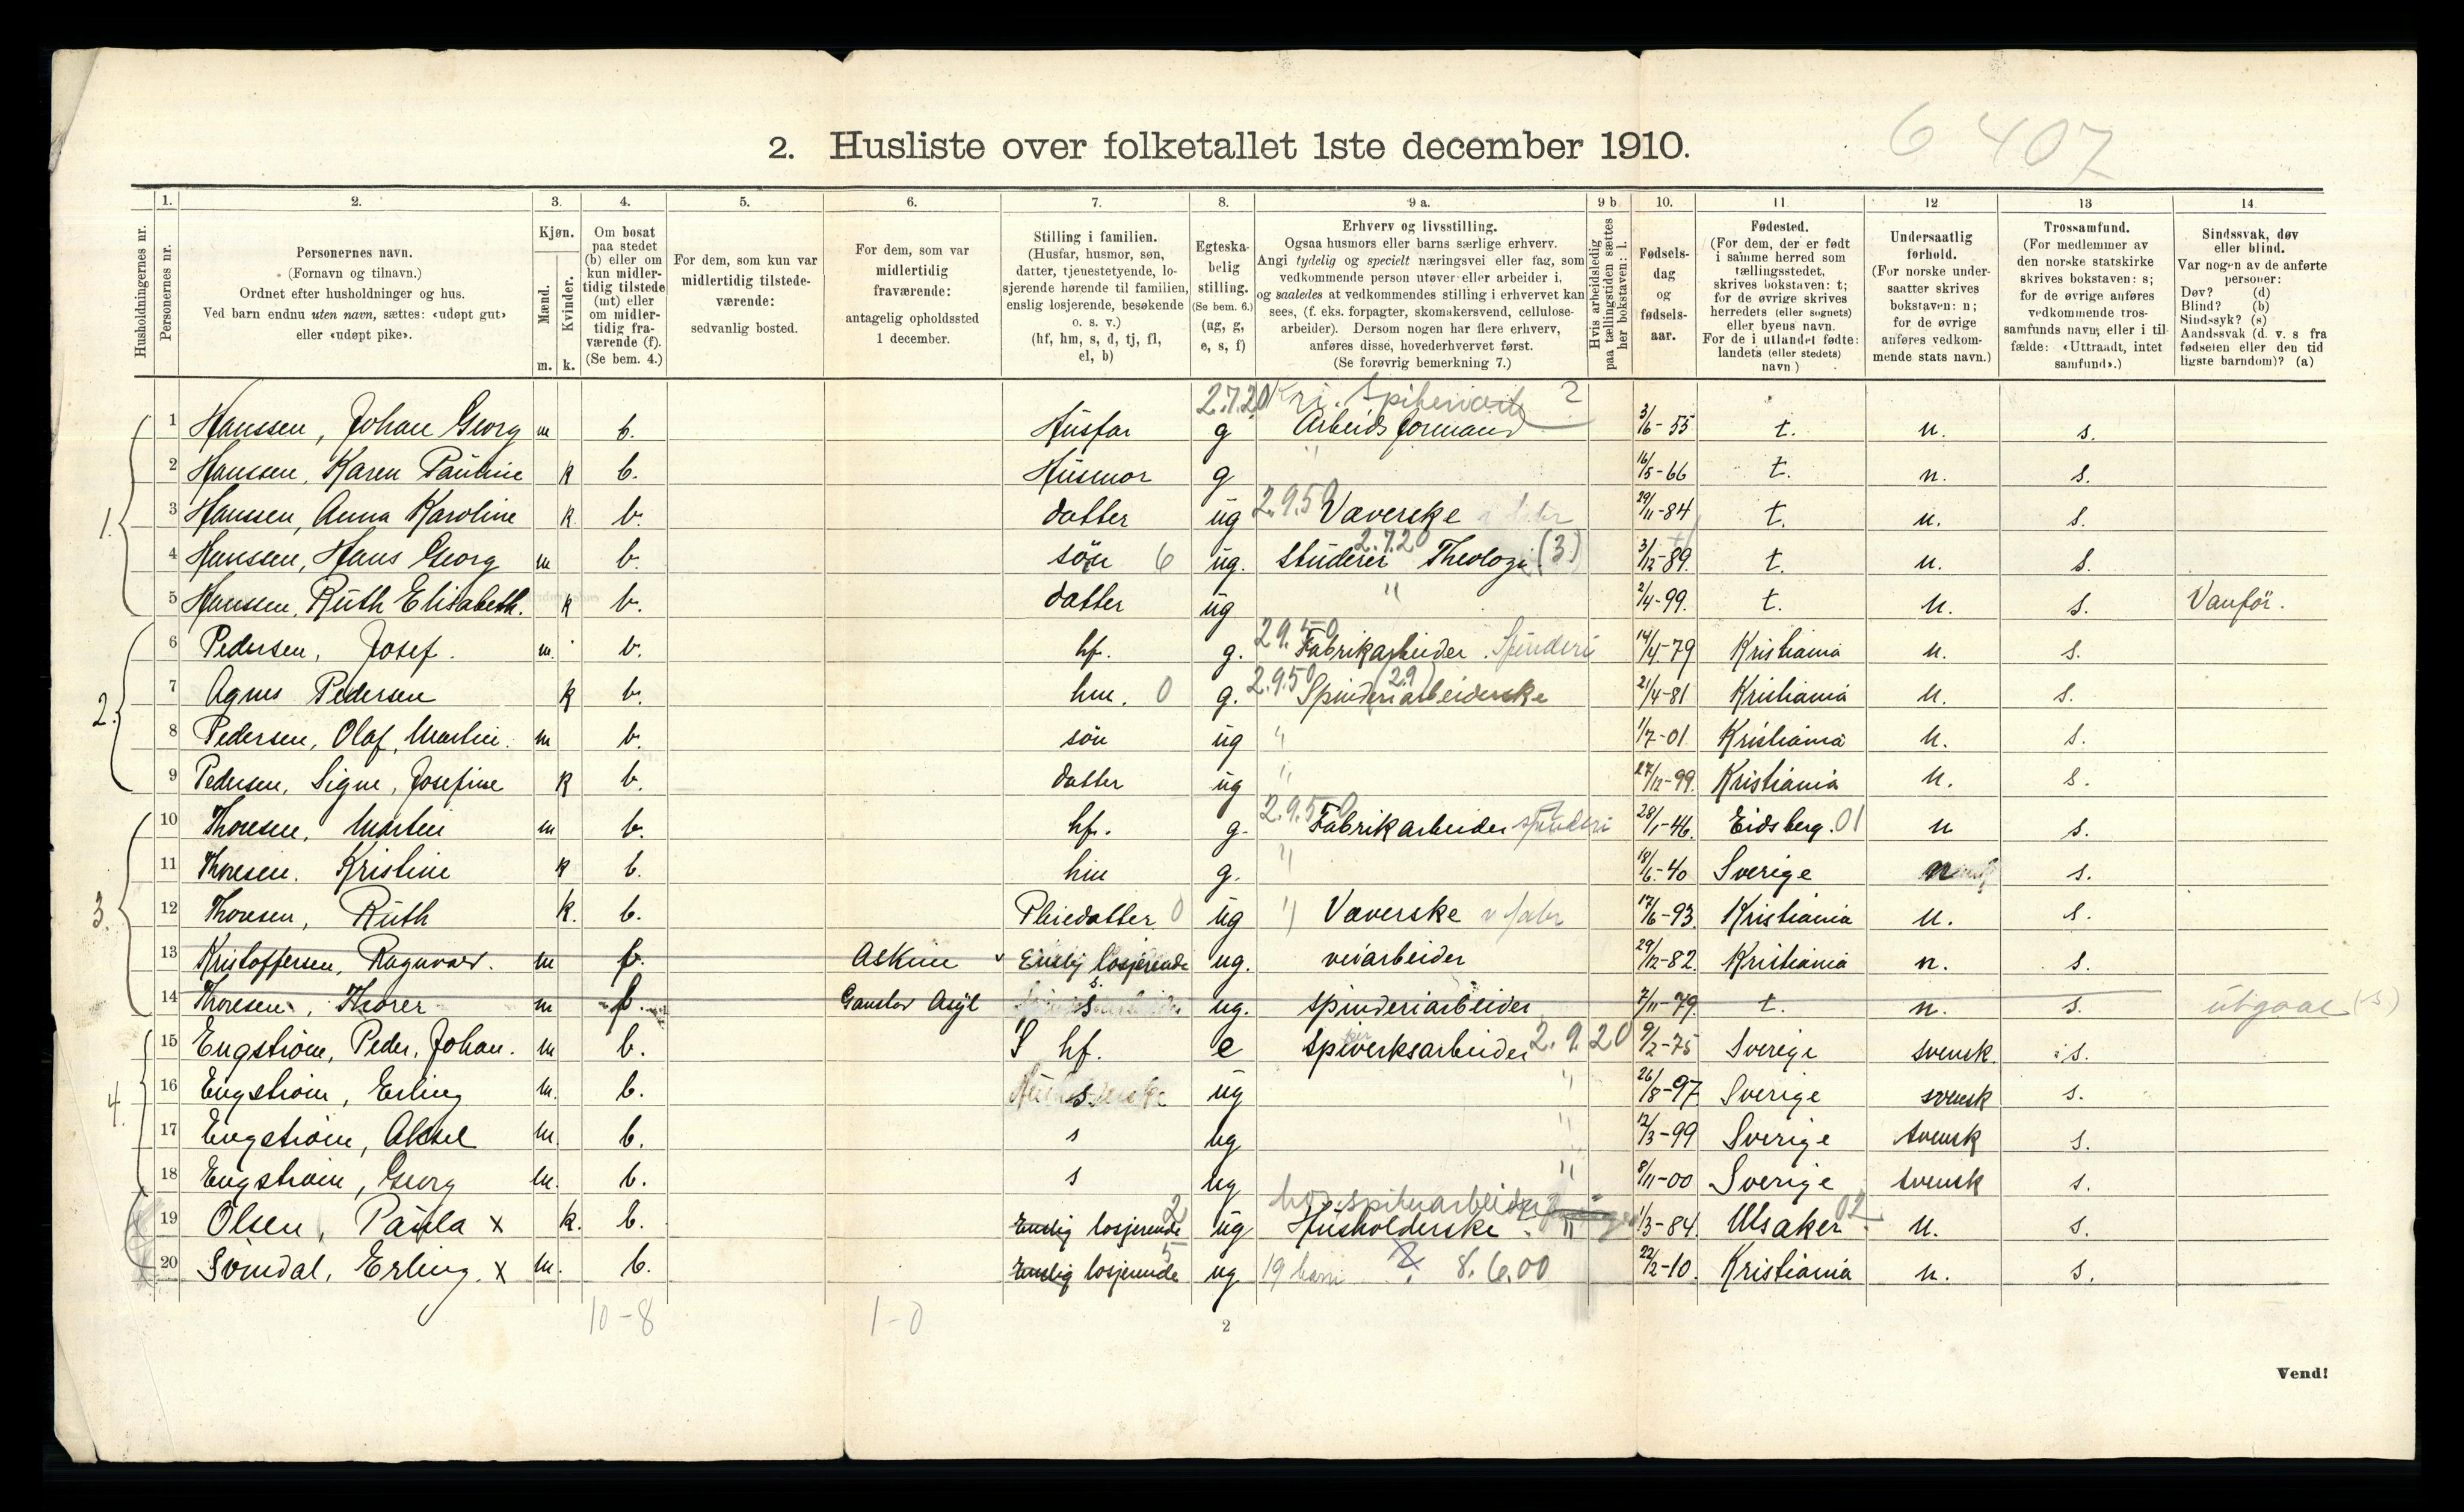 6 407
2. Husliste over folketallet 1ste december 1910.
1. 2. 3. 4. 5. 6. 7. 8. 9 a. 9 b. 10. 11 12 13 14
Husholdningernes nr.
Personernes nr.
Personernes navn.
(Fornavn og tilnavn.)
Ordnet efter husholdninger og hus.
Ved barn endnu uten navn, sættes: «udøpt gut»
eller «udøpt pike».
Kjøn.
Mænd.
Kvinder.
m. k.
Om bosat
paa stedet
(b) eller om
kun midler-
tidig tilstede
(mt) eller
om midler-
tidig fra-
værende (f).
(Se bem. 4.)
For dem, som kun var
midlertidig tilstede-
værende:
sedvanlig bosted.
For dem, som var
midlertidig
fraværende:
antagelig opholdssted
1 december.
Stilling i familien.
(Husfar, husmor, søn,
datter, tjenestetyende, lo-
sjerende hørende til familien,
enslig losjerende, besøkende
o. s. v.)
(hf, hm, s, d, tj, fl,
el, b)
Egteska-
belig
stilling.
(Se bem. 6.)
(ug, g,
e, s, f)
Erhverv og livsstilling.
Ogsaa husmors eller barns særlige erhverv.
Angi tydelig og specielt næringsvei eller fag, som
vedkommende person utøver eller arbeider i,
og saaledes at vedkommendes stilling i erhvervet kan
sees, (f. eks. forpagter, skomakersvend, cellulose-
arbeider). Dersom nogen har flere erhverv,
anføres disse, hovederhvervet først.
(Se forøvrig bemerkning 7.)
Hvis arbeidsledig
paa tællingstiden sættes
her bokstaven: l.
Fødsels-
dag
og
fødsels-
aar.
Fødested.
(For dem, der er født
i samme herred som
tællingsstedet,
skrives bokstaven: t;
for de øvrige skrives
herredets (eller sognets)
eller byens navn.
For de i utlandet fødte:
landets (eller stedets)
navn)
Undersaatlig
forhold.
(For norske under-
saatter skrives
bokstaven: n;
for de øvrige
anføres vedkom-
mende stats navn.)
Trossamfund.
(For medlemmer av
den norske statskirke
skrives bokstaven: s;
for de øvrige anføres
vedkommende tros-
samfunds navn, eller i til-
fælde: «Uttraadt, intet
samfund».)
Sindssvak, døv
eller blind.
Var nogen av de anførte
personer:
Døv? (d)
Blind? (b)
Sindssyk? (s)
Aandssvak (d. v. s fra
fødselen eller den tid
ligste barndom)? (a)
2.7.20 Kri. Spikerverk ?
1. 1 Hanssen, Johan Georg m b. Husfar g Arbeidsformand 3/6-55 t. n. s.
2 Hanssen, Karen Pauline k b. Husmor g " 16/5-66 t. n. s.
3 Hanssen, Anna Karoline k b. datter ug 2.9.50 Væverske v fabr 29/11-84 t. n. s.
4 Hanssen, Hans Georg m b. søn 6 ug. studerer Theologi (3) 2.7.20 3/12-89. t. n. s.
5 Hanssen, Ruth Elisabeth. k b. datter ug " 2/4-99. t. n. s. Vanför.
2. 6 Pedersen, Josef. m. b. hf. g. 29.50 Fabrikarbeider. Spinderi 14/4-79 Kristiania n. s.
7 Agnes Pedersen k b. hm. 0 g. 2.9.50 Spinderiarbeiderske (29) 21/4-81 Kristiania n. s.
8 Pedersen, Olaf, Martin. m b. søn ug " 1/7-01 Kristiania n. s.
9 Pedersen, Signe, Josefine k b. datter ug " 27/12-99. Kristiania n. s.
3. 10 Thoresen, Martin m b. hf. g. 2.9.50 Fabrikarbeider spinderi 28/1-46. Eidsberg. 01 n s.
11 Thoresen. Kristine k b. hm g. " 18/6-40 Sverige n s.
12 Thoresen, Ruth k. b. Pleiedatter 0 ug " Væverske v fabr 17/6-93. Kristiania n. s.
13 Kristoffersen, Ragnvald. m f. Askim Enslig losjerende ug. veiarbeider 29/12-82. Kristiania n. s.
14 Thoresen, Thorer m f. Gaustad Asyl s ug. spinderiarbeider 7/11-79. t. n. s. utgaar (s)
4. 15 Engström, Peder, Johan. m b. S hf. e spikerverksarbeider 2.9.20 9/2-75 Sverige svensk. s.
16 Engström, Erling m. b. s. ug " 26/8-97 Sverige svensk s.
17 Engström, Aksel m. b. s ug " 12/3-99 Sverige svensk s.
18 Engström, Georg m. b. s ug " 8/11-00 Sverige svensk s.
hos spikerarbeider
19 Olsen, Paula x k. b. Enslig losjerende 2 ug Husholderske 1/3-84. Ulsaker 02 n. s.
20 Svindal, Erling. x m. b. Enslig losjerende 5 ug 8.6.00 22/2-10. Kristiania n. s.
10-8 1-0
2
Vend!